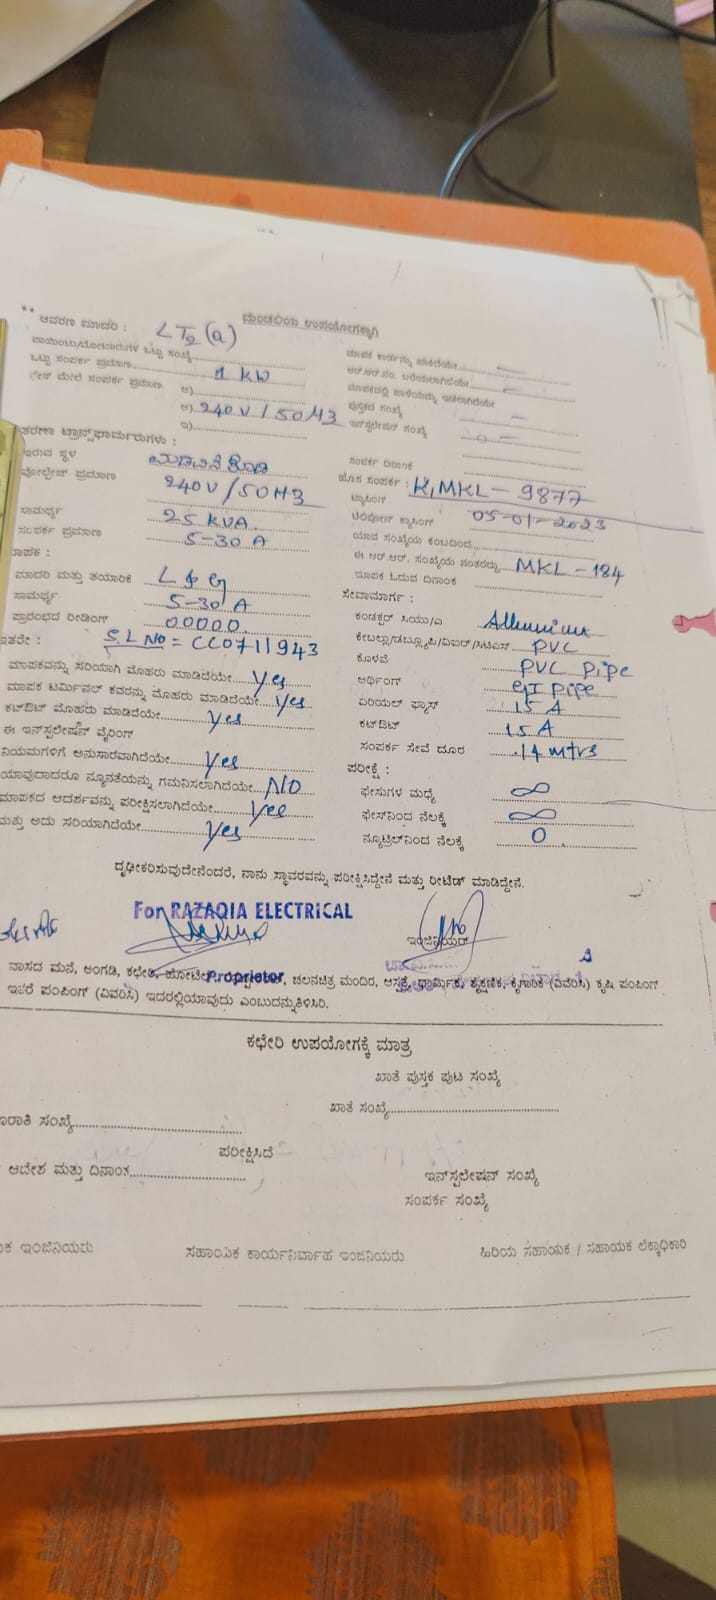 ಮಂಡಲಿಯ ಉಪಯೋಗಕ್ಕಾಗಿ
** ಆವರಣ ಮಾದರಿ : LT2 (a)
ಪಾಯಿಂಟು/ಮೋಟಾರುಗಳ ಒಟ್ಟು ಸಂಖ್ಯೆ
ಒಟ್ಟು ಸಂಪರ್ಕ ಪ್ರಮಾಣ 1 KW
ಮೇಲೆ ಸಂಪರ್ಕ ಪ್ರಮಾಣ ಅ)
ಆ) 240V / 50H3
ಇ)
ಟ್ರಾನ್ಸ್‌ಫಾರ್ಮರುಗಳು :
ಇರುವ ಸ್ಥಳ
ವೋಲ್ಟೇಜ್ ಪ್ರಮಾಣ 240V/50H3
ಸಾಮರ್ಥ್ಯ 25 KVA
ಸಂಪರ್ಕ ಪ್ರಮಾಣ 5-30 A
ಮಾಪಕ :
ಮಾದರಿ ಮತ್ತು ತಯಾರಿಕೆ L & G
ಸಾಮರ್ಥ್ಯ 5-30 A
ಪ್ರಾರಂಭದ ರೀಡಿಂಗ್ 00000
ಇತರೇ : S.L No = CC0711943
ಮಾಪಕವನ್ನು ಸರಿಯಾಗಿ ಮೊಹರು ಮಾಡಿದೆಯೇ Yes
ಮಾಪಕ ಟರ್ಮಿನಲ್ ಕವರನ್ನು ಮೊಹರು ಮಾಡಿದೆಯೇ Yes
ಕಟ್‌ಔಟ್ ಮೊಹರು ಮಾಡಿದೆಯೇ Yes
ಈ ಇನ್‌ಸ್ಟಲೇಷನ್ ವೈರಿಂಗ್
ನಿಯಮಗಳಿಗೆ ಅನುಸಾರವಾಗಿದೆಯೇ Yes
ಯಾವುದಾದರೂ ನ್ಯೂನತೆಯನ್ನು ಗಮನಿಸಲಾಗಿದೆಯೇ NO
ಮಾಪಕದ ಆದರ್ಶವನ್ನು ಪರೀಕ್ಷಿಸಲಾಗಿದೆಯೇ Yes
ಮತ್ತು ಅದು ಸರಿಯಾಗಿದೆಯೇ Yes
ಪುಸ್ತಕದ ಸಂಖ್ಯೆ
ಇನ್‌ಸ್ಟಲೇಷನ್ ಸಂಖ್ಯೆ
ಸಂಪರ್ಕ ದಿನಾಂಕ
ಹೊಸ ಸಂಪರ್ಕ : K,MKL - 9877
ಟ್ಯಾಪಿಂಗ್ 05-01-2023
ಯಾವ ಸಂಖ್ಯೆಯ ಕಂಬದಿಂದ
ಈ ಆರ್.ಆರ್. ಸಂಖ್ಯೆಯ ನಂತರದ್ದು MKL - 184
ಮಾಪಕ ಓದುವ ದಿನಾಂಕ
ಸೇವಾಮಾರ್ಗ :
ಕಂಡಕ್ಟರ್ ಸಿಯು/ಎ Alluminium
ಕೇಬಲ್ಲು/ಡಬ್ಲ್ಯೂಪಿ/ವಿಐಆರ್/ಸಿಟಿಎಸ್ PVC
ಕೊಳವೆ PVC Pipe
ಅರ್ಥಿಂಗ್ GI Pipe
ಏರಿಯಲ್ ಫ್ಯೂಸ್ 15 A
ಕಟ್‌ಔಟ್ 15 A
ಸಂಪರ್ಕ ಸೇವೆ ದೂರ 14 mtrs
ಪರೀಕ್ಷೆ :
ಫೇಸುಗಳ ಮಧ್ಯೆ ∞
ಫೇಸ್‌ನಿಂದ ನೆಲಕ್ಕೆ ∞
ನ್ಯೂಟ್ರಲ್‌ನಿಂದ ನೆಲಕ್ಕೆ 0
ದೃಢೀಕರಿಸುವುದೇನೆಂದರೆ, ನಾನು ಸ್ಥಾವರವನ್ನು ಪರೀಕ್ಷಿಸಿದ್ದೇನೆ ಮತ್ತು ರೀಟೆಡ್ ಮಾಡಿದ್ದೇನೆ.
For RAZAQIA ELECTRICAL
ಇಂಜಿನಿಯರ್
Proprietor
ವಾಸದ ಮನೆ, ಅಂಗಡಿ, ಕಛೇರಿ, ಹೋಟೆಲ್ ಚಲನಚಿತ್ರ ಮಂದಿರ, ಆಸ್ಪತ್ರೆ, ಧಾರ್ಮಿಕ, ಶೈಕ್ಷಣಿಕ, ಕೈಗಾರಿಕೆ (ವಿವರಿಸಿ) ಕೃಷಿ ಪಂಪಿಂಗ್
ಇತರೆ ಪಂಪಿಂಗ್ (ವಿವರಿಸಿ) ಇದರಲ್ಲಿಯಾವುದು ಎಂಬುದನ್ನುತಿಳಿಸಿರಿ.
ಕಛೇರಿ ಉಪಯೋಗಕ್ಕೆ ಮಾತ್ರ
ಖಾತೆ ಪುಸ್ತಕ ಪುಟ ಸಂಖ್ಯೆ
ಖಾತೆ ಸಂಖ್ಯೆ
ಸಂಖ್ಯೆ
ಪರೀಕ್ಷಿಸಿದೆ
ಆದೇಶ ಮತ್ತು ದಿನಾಂಕ
ಇನ್‌ಸ್ಪಲೇಷನ್ ಸಂಖ್ಯೆ
ಸಂಪರ್ಕ ಸಂಖ್ಯೆ
ಇಂಜಿನಿಯರು ಸಹಾಯಕ ಕಾರ್ಯನಿರ್ವಾಹ ಇಂಜನಿಯರು ಹಿರಿಯ ಸಹಾಯಕ / ಸಹಾಯಕ ಲೆಕ್ಕಾಧಿಕಾರಿ